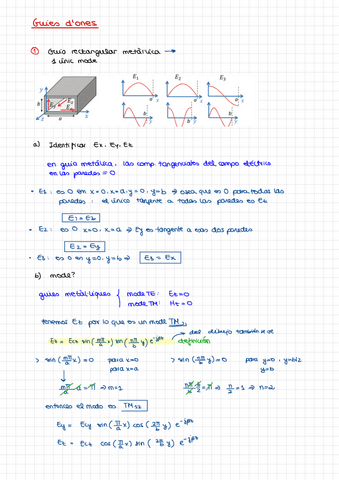 Guies d'ones
① Guía rectangular metálica →
1 únic mode
E1 E2 E3
a) Identificar Ex, Ey, Ez
en guía metálica, las comp. tangenciales del campo eléctrico
en las paredes = 0
• E1: es 0 en x=0, x=a, y=0, y=b → osea que es 0 para todas las
paredes: el único tangente a todas las paredes es Ez
E1 = Ez
• E2: es 0 x=0, x=a → Ey es tangente a esas dos paredes
E2 = Ey
• E3: es 0 en y=0, y=b → E3 = Ex
b) mode?
guies metàl·liques { mode TE: Ez=0
mode TM: Hz=0
tenemos Ez por lo que es un mode TM
del dibujo también x de
definición
Ez = Ec sin(mπ/a x) sin(nπ/b y) e^-jβz
> sin(mπ/a x)=0 para x=0
para x=a
> sin(nπ/b y)=0 para y=0, y=b/2
y=b
mπ/a a = π → m=1
nπ/b b/2 = π → n/2 = 1 → n=2
entonces el modo es TM12
Ey = Ecy sin(π/a x) cos(2π/b y) e^-jβz
Ez = Ecz cos(π/a x) sin(2π/b y) e^-jβz